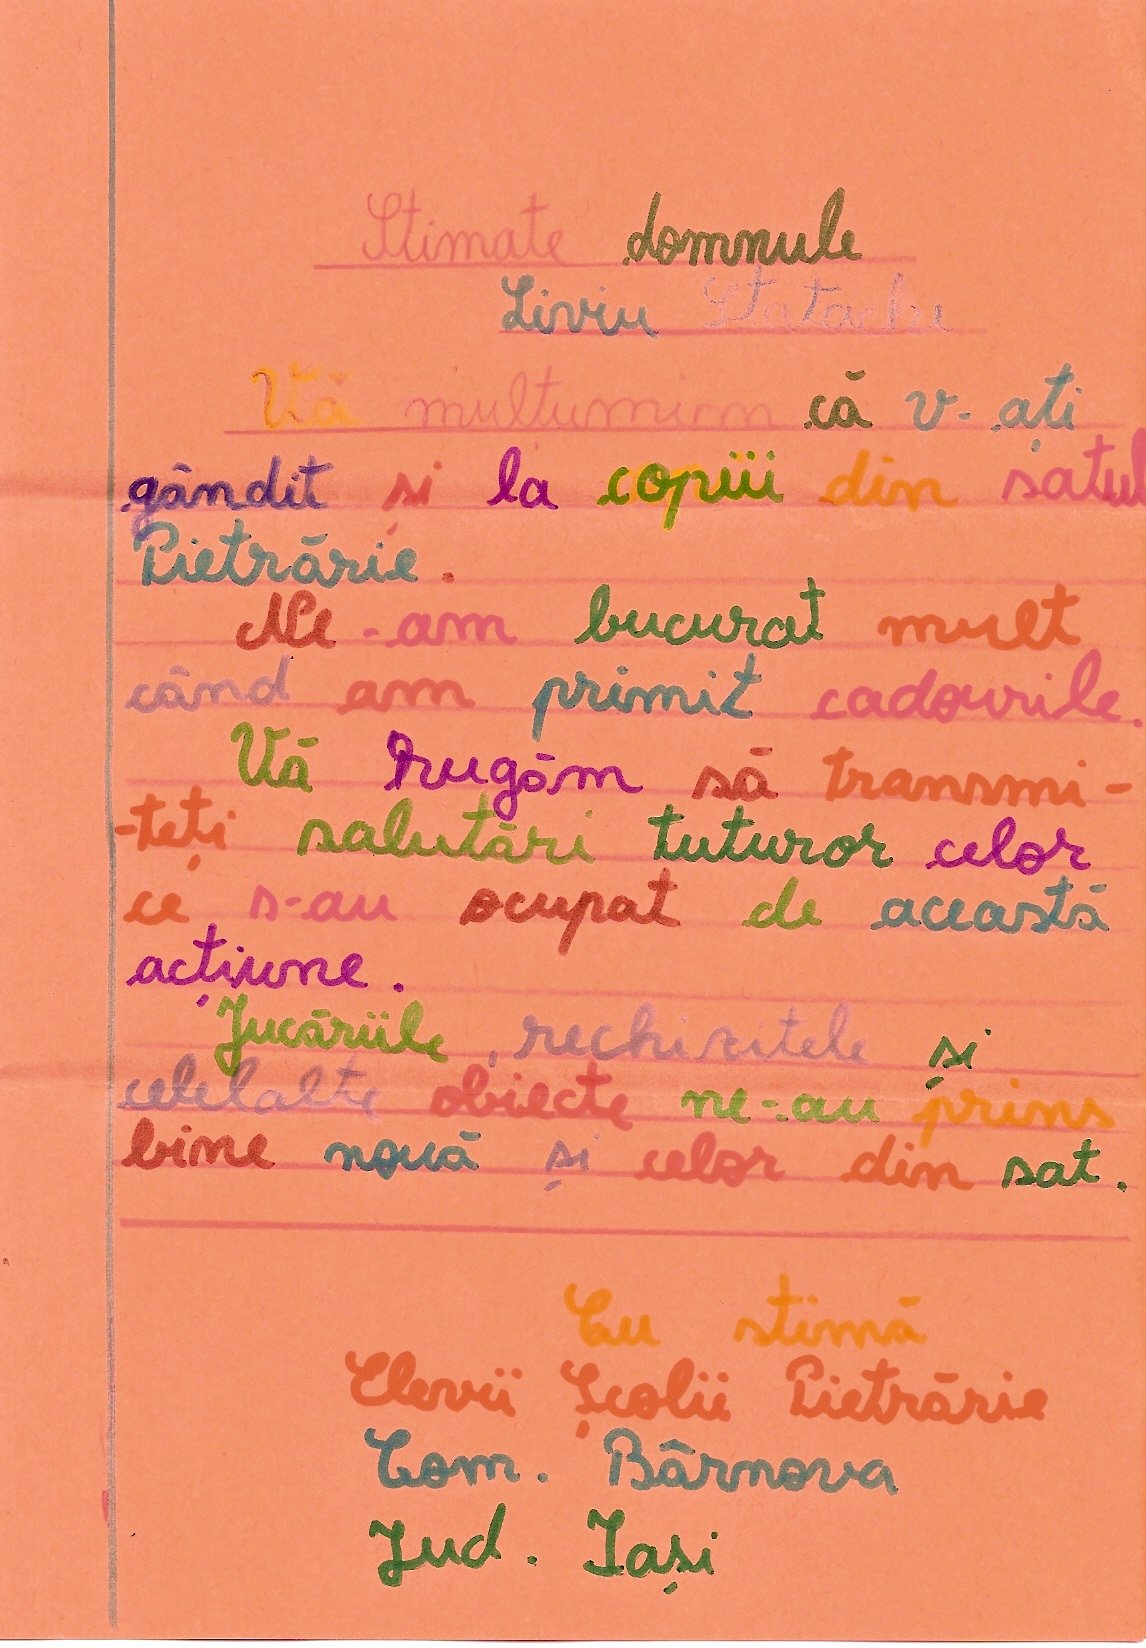 Stimate domnule
Liviu Statache
Vă multumim că v-ați
gândit și la copiii din satul
Pietrărie.
Ne-am bucurat mult
când am primit cadourile.
Vă rugăm să transmi-
-teți salutări tuturor celor
ce s-au ocupat de această
acțiune.
Jucăriile, rechizitele și
celelalte obiecte ne-au prins
bine nouă și celor din sat.
Cu stimă
Elevii Școlii Pietrărie
Com. Bârnova
Jud. Iași